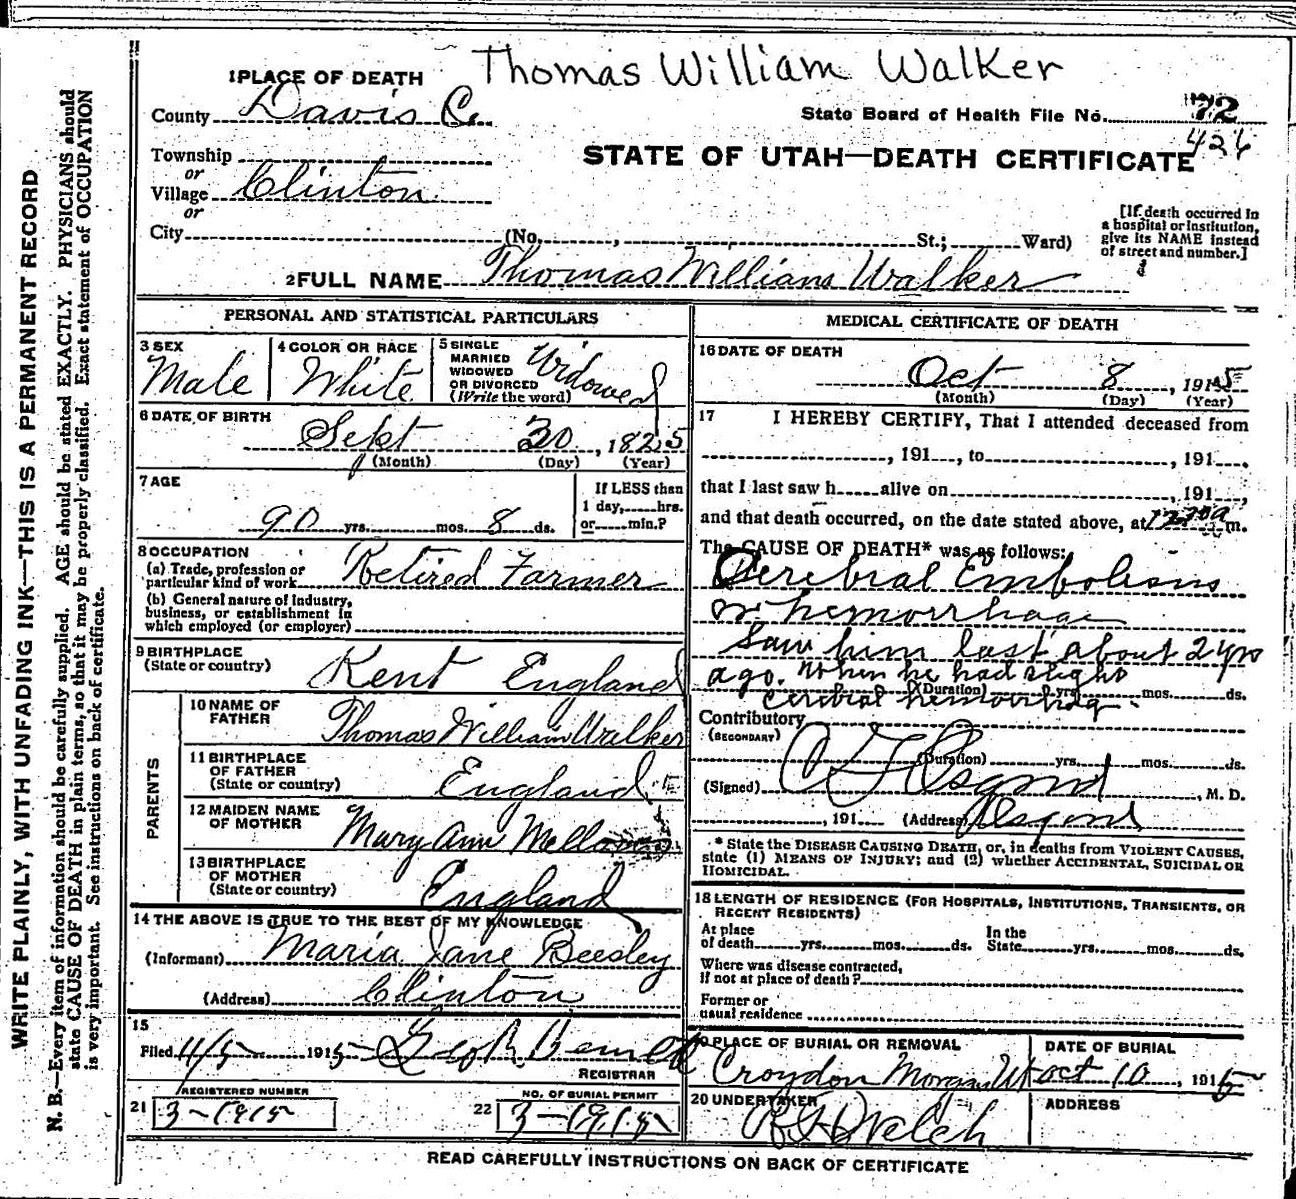 Thomas William Walker
1 PLACE OF DEATH
County Davis Co.
State Board of Health File No. 72
426
Township
or
Village Clinton
or
City
STATE OF UTAH—DEATH CERTIFICATE
(No. , St.; Ward)
[If death occurred in
a hospital or institution,
give its NAME instead
of street and number.]
2 FULL NAME Thomas William Walker
PERSONAL AND STATISTICAL PARTICULARS
3 SEX
Male
4 COLOR OR RACE
White
5 SINGLE
MARRIED
WIDOWED
OR DIVORCED
(Write the word)
Widowed
6 DATE OF BIRTH
Sept 30, 1825
(Month) (Day) (Year)
7 AGE
90 yrs. mos. 8 ds.
If LESS than
1 day, hrs.
or min.?
8 OCCUPATION
(a) Trade, profession or
particular kind of work Retired Farmer
(b) General nature of industry,
business, or establishment in
which employed (or employer)
9 BIRTHPLACE
(State or country) Kent England
PARENTS
10 NAME OF
FATHER Thomas William Walker
11 BIRTHPLACE
OF FATHER
(State or country) England
12 MAIDEN NAME
OF MOTHER Mary Ann
13 BIRTHPLACE
OF MOTHER
(State or country) England
14 THE ABOVE IS TRUE TO THE BEST OF MY KNOWLEDGE
(Informant) Maria Jane Beesley
(Address) Clinton
15
Filed 11/5 1915
REGISTRAR
REGISTERED NUMBER
21 3-1915
NO. OF BURIAL PERMIT
22 3-1915
MEDICAL CERTIFICATE OF DEATH
16 DATE OF DEATH
Oct 8, 1915
(Month) (Day) (Year)
17 I HEREBY CERTIFY, That I attended deceased from
, 191 , to , 191 ,
that I last saw h alive on , 191 ,
and that death occurred, on the date stated above, at m.
The CAUSE OF DEATH* was as follows:
Cerebral Embolism
or hemorrhage
Saw him last about 2 yrs
ago. When he had slight
(Duration) yrs. mos. ds.
cerebral hemorrhag
Contributory
(SECONDARY)
(Duration) yrs. mos. ds.
(Signed) , M. D.
, 191 (Address)
* State the DISEASE CAUSING DEATH, or, in deaths from VIOLENT CAUSES,
state (1) MEANS OF INJURY; and (2) whether ACCIDENTAL, SUICIDAL OR
HOMICIDAL.
18 LENGTH OF RESIDENCE (FOR HOSPITALS, INSTITUTIONS, TRANSIENTS, OR
RECENT RESIDENTS)
At place
of death yrs. mos. ds.
In the
State yrs. mos. ds.
Where was disease contracted,
if not at place of death?
Former or
usual residence
19 PLACE OF BURIAL OR REMOVAL
Croydon Morgan Ut
DATE OF BURIAL
Oct 10, 1915
20 UNDERTAKER
Welch
ADDRESS
READ CAREFULLY INSTRUCTIONS ON BACK OF CERTIFICATE
WRITE PLAINLY, WITH UNFADING INK—THIS IS A PERMANENT RECORD
N. B.—Every item of information should be carefully supplied. AGE should be stated EXACTLY. PHYSICIANS should
state CAUSE OF DEATH in plain terms, so that it may be properly classified. Exact statement of OCCUPATION
is very important. See instructions on back of certificate.